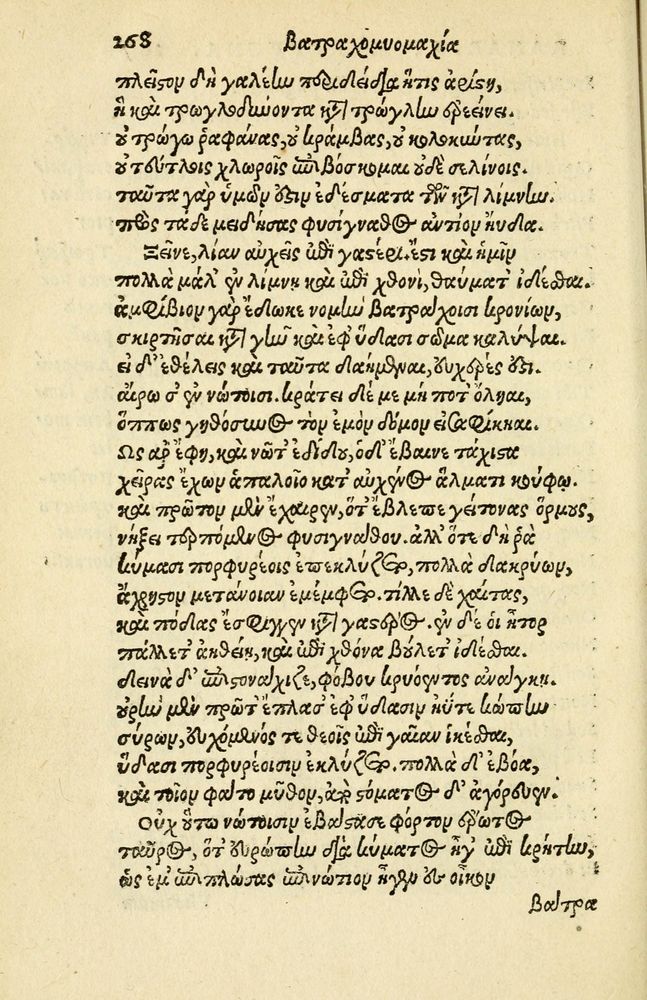 268 Βατραχομυομαχία
πλεῖστον δὴ γαλέην περιδείδια ἥτις ἀρίστη,
ἣ καὶ τρωγλοδύνοντα κατὰ τρώγλην ἐρεείνει.
οὐ τρώγω ῥαφάνας, οὐ κράμβας, οὐ κολοκύντας,
οὐ τεύτλοις χλωροῖς ἐπιβόσκομαι οὐδὲ σελίνοις.
ταῦτα γὰρ ὑμῶν ἐστιν ἐδέσματα τῶν κατὰ λίμνην.
πρὸς τάδε μειδήσας φυσίγναθος ἀντίον ηὔδα.
Ξεῖνε, λίαν αὐχεῖς ἐπὶ γαστέρι. ἔστι καὶ ἡμῖν
πολλὰ μάλ' ἐν λίμνῃ καὶ ἐπὶ χθονὶ, θαύματ' ἰδέσθαι.
ἀμφίβιον γὰρ ἔδωκε νομὴν βατράχοισι κρονίων,
σκιρτῆσαι κατὰ γῆν καὶ ἐφ' ὕδασι σῶμα καλύψαι.
εἰ δ' ἐθέλεις καὶ ταῦτα δαήμεναι, εὐχερές ἐστι.
αἴρω σ' ἐν νώτοισι. κράτει δέ με μή ποτ' ὄληαι,
ὅππως γηθόσυνος τὸν ἐμὸν δόμον εἰσαφίκηαι.
Ὣς ἄρ' ἔφη, καὶ νῶτ' ἐδίδου, ὁ δ' ἔβαινε τάχιστα
χεῖρας ἔχων ἁπαλοῖο κατ' αὐχένος ἅλματι κούφῳ.
καὶ πρῶτον μὲν ἔχαιρεν, ὅτ' ἔβλεπε γείτονας ὅρμους,
νήξει τερπόμενος φυσιγνάθου. ἀλλ' ὅτε δή ῥα
κύμασι πορφυρέοις ἐπεκλύζετο, πολλὰ δακρύων,
ἄχρηστον μετάνοιαν ἐμέμφετο. τίλλε δὲ χαίτας,
καὶ πόδας ἔσφιγγεν κατὰ γαστέρος. ἐν δέ οἱ ἦτορ
πάλλετ' ἀηθείῃ, καὶ ἐπὶ χθόνα βούλετ' ἰδέσθαι.
δεινὰ δ' ἐπεστονάχιζε, φόβου κρυόεντος ἀνάγκῃ.
οὐρὴν μὲν πρῶτ' ἔπλασ' ἐφ' ὕδασιν ἠΰτε κώπην
σύρων, εὐχόμενός τε θεοῖς ἐπὶ γαῖαν ἱκέσθαι,
ὕδασι πορφυρέοισιν ἐκλύζετο. πολλὰ δ' ἐβόα,
καὶ τοῖον φάτο μῦθον, ἀπὸ στόματος δ' ἀγόρευεν.
Οὐχ οὕτω νώτοισιν ἐβάστασε φόρτον ἔρωτος
ταῦρος, ὅτ' εὐρώπην διὰ κύματος ἦγ' ἐπὶ κρήτην,
ὡς ἔμ' ἐπιπλώσας ἐπινώτιον ἦγεν ἐς οἶκον
βατρα